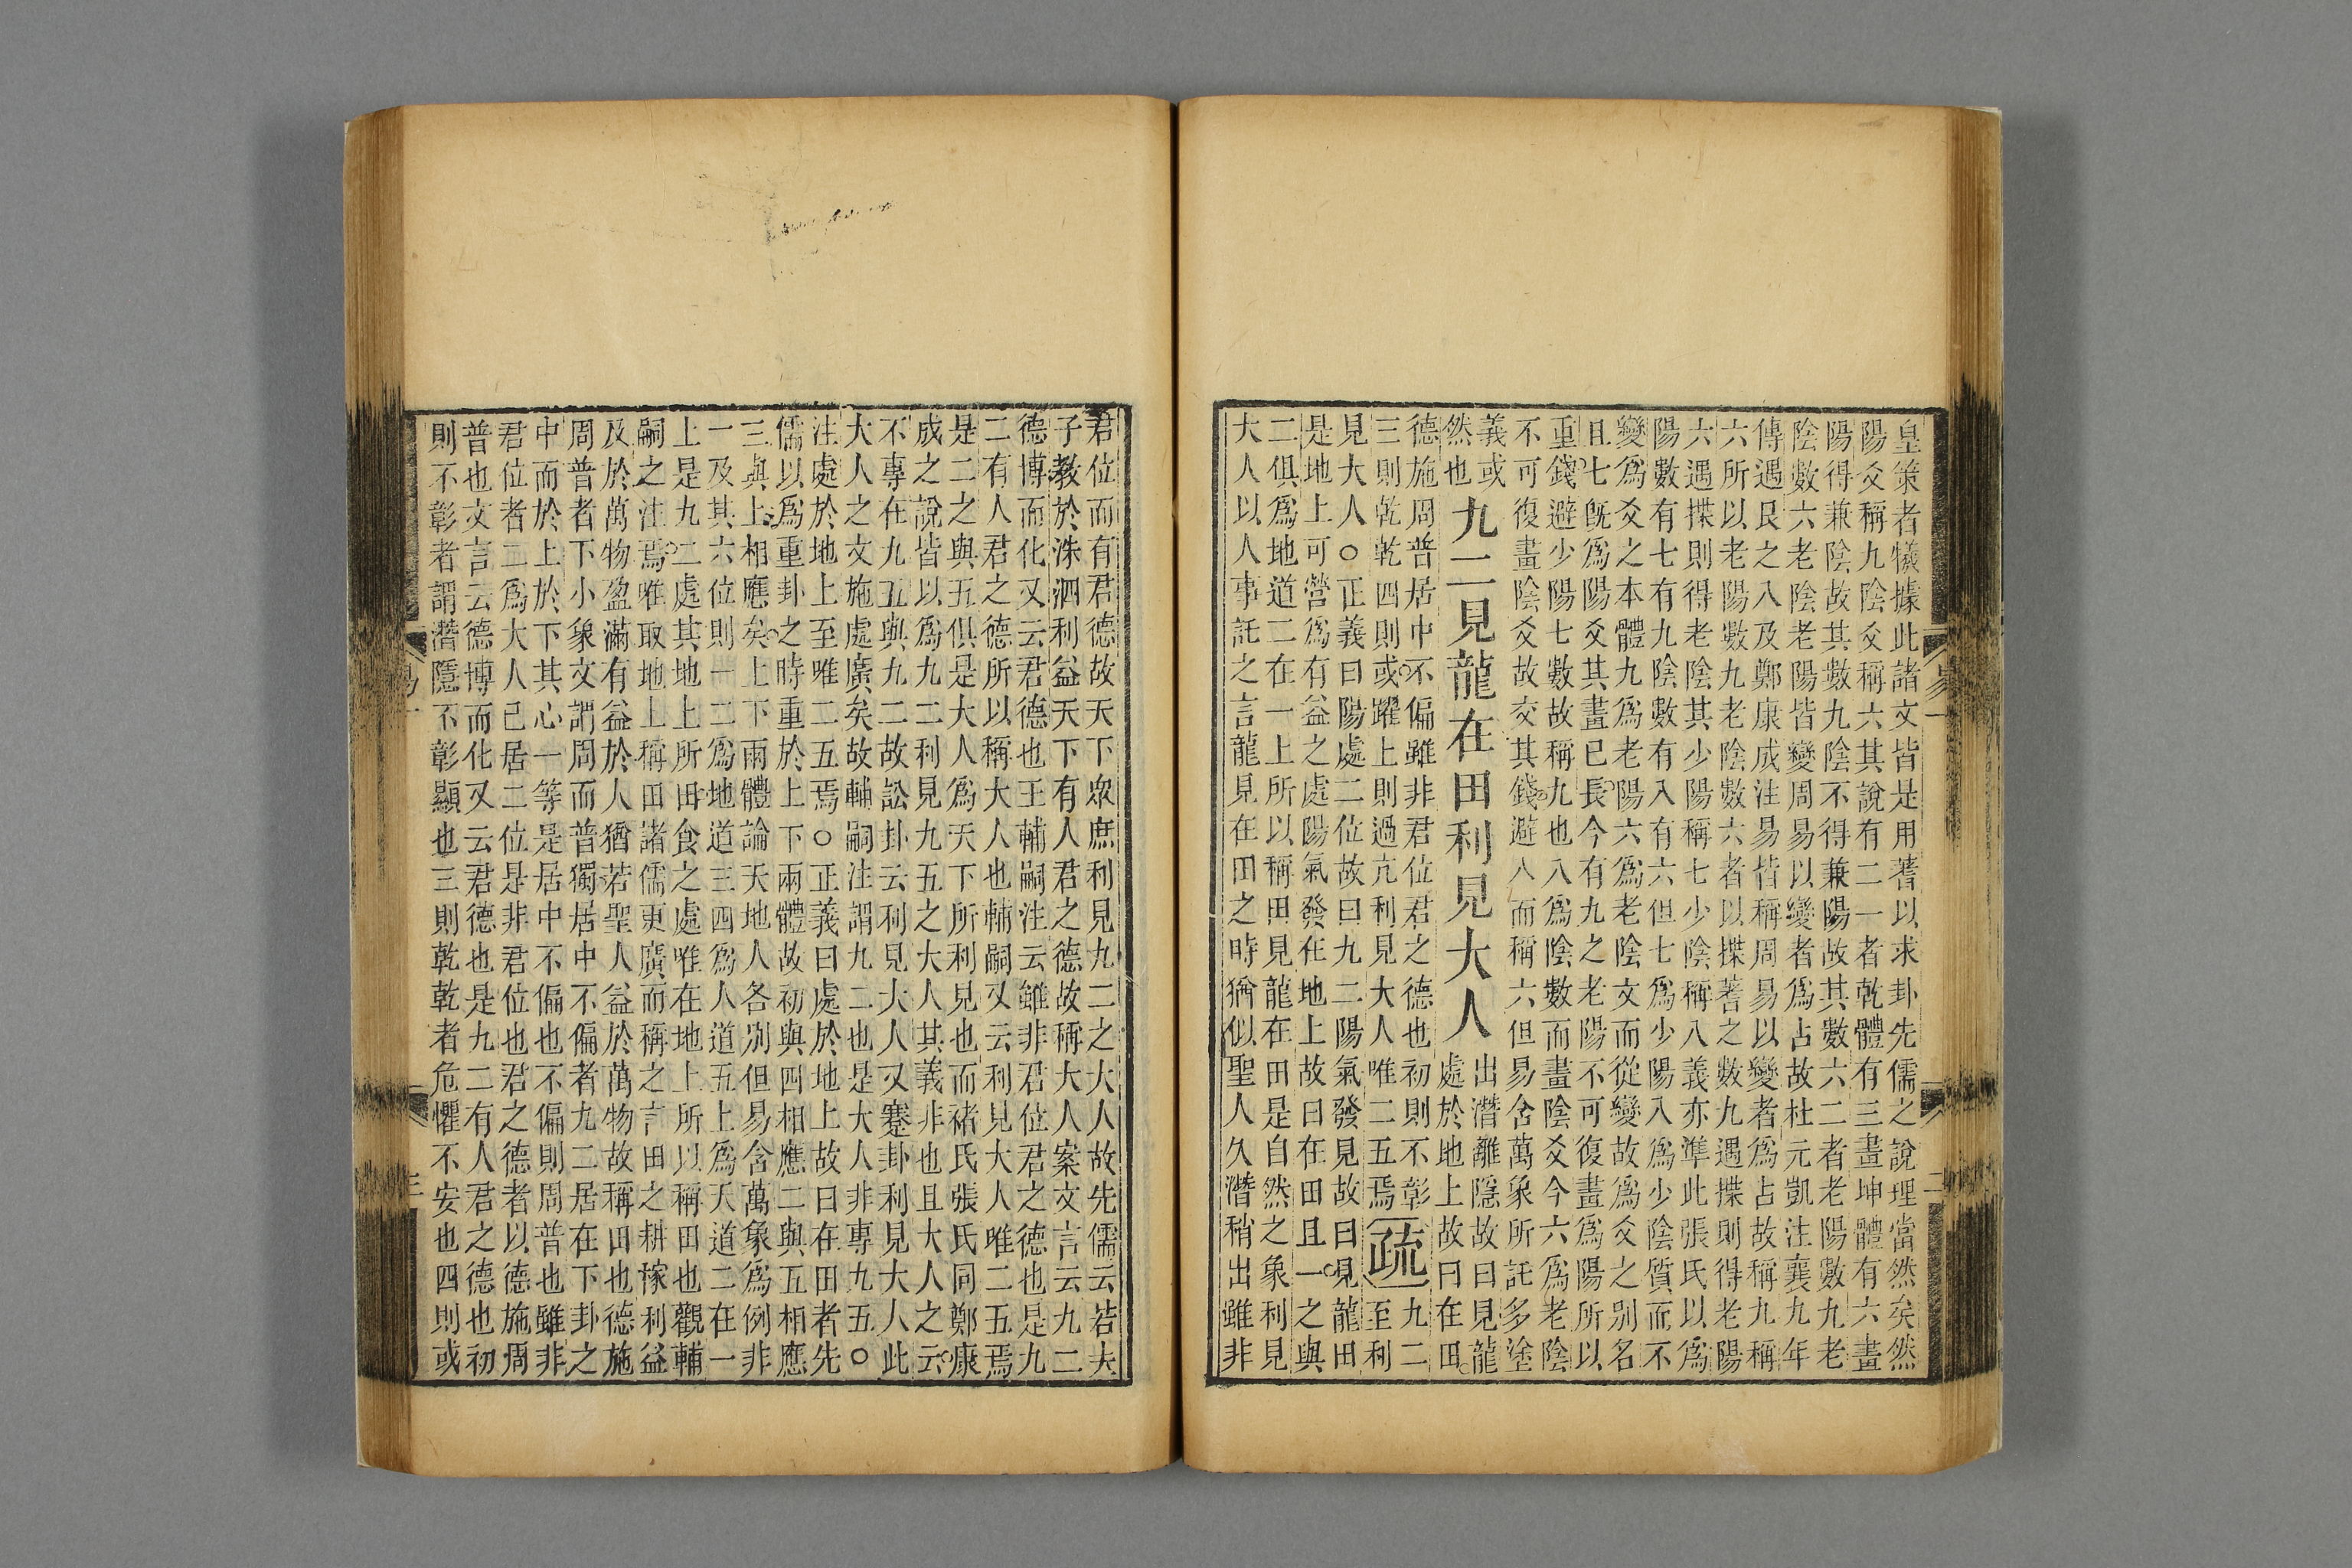 皇策者犧據此諸文皆是用蓍以求卦先儒之說理當然矣然
陽爻稱九陰爻稱六其說有二一者乾體有三畫坤體有六畫
陽得兼陰故其數九陰不得兼陽故其數六二者老陽數九老
陰數六老陰老陽皆變周易以變者爲占故杜元凱注襄九年
傳遇艮之八及鄭康成注易皆稱周易以變者爲占故稱九稱
六所以老陽數九老陰數六者以揲蓍之數九遇揲則得老陽
六遇揲則得老陰其少陽稱七少陰稱八義亦準此張氏以爲
陽數有七有九陰數有八有六但七爲少陽八爲少陰質而不
變爲爻之本體九爲老陽六爲老陰文而從變故爲爻之別名
且七既爲陽爻其畫已長今有九之老陽不可復畫爲陽所以
重錢避少陽七數故稱九也八爲陰數而畫陰爻今六爲老陰
不可復畫陰爻故交其錢避八而稱六但易含萬象所託多塗
義或
然也
九二見龍在田利見大人
出潛離隱故曰見龍
處於地上故曰在田
德施周普居中不偏雖非君位君之德也初則不彰
三則乾乾四則或躍上則過亢利見大人唯二五焉
疏
九二
至利
見大人○正義曰陽處二位故曰九二陽氣發見故曰見龍田
是地上可營爲有益之處陽氣發在地上故曰在田且一之與
二俱爲地道二在一上所以稱田見龍在田是自然之象利見
大人以人事託之言龍見在田之時猶似聖人久潛稍出雖非
君位而有君德故天下眾庶利見九二之大人故先儒云若夫
子教於洙泗利益天下有人君之德故稱大人案文言云九二
德博而化又云君德也王輔嗣注云雖非君位君之德也是九
二有人君之德所以稱大人也輔嗣又云利見大人唯二五焉
是二之與五俱是大人爲天下所利見也而褚氏張氏同鄭康
成之說皆以爲九二利見九五之大人其義非也且大人之云
不專在九五與九二故訟卦云利見大人又蹇卦利見大人此
大人之文施處廣矣故輔嗣注謂九二也是大人非專九五○
注處於地上至唯二五焉○正義曰處於地上故曰在田者先
儒以爲重卦之時重於上下兩體故初與四相應二與五相應
三與上相應矣上下兩體論天地人各別但易含萬象爲例非
一及其六位則一二爲地道三四爲人道五上爲天道二在一
上是九二處其地上所田食之處唯在地上所以稱田也觀輔
嗣之注焉唯取地上稱田諸儒更廣而稱之言田之耕稼利益
及於萬物盈滿有益於人猶若聖人益於萬物故稱田也德施
周普者下小象文謂周而普獨居中不偏者九二居在下卦之
中而於上於下其心一等是居中不偏也不偏則周普也雖非
君位者二爲大人已居二位是非君位也君之德者以德施周
普也文言云德博而化又云君德也是九二有人君之德也初
則不彰者謂潛隱不彰顯也三則乾乾者危懼不安也四則或
易一
二
三